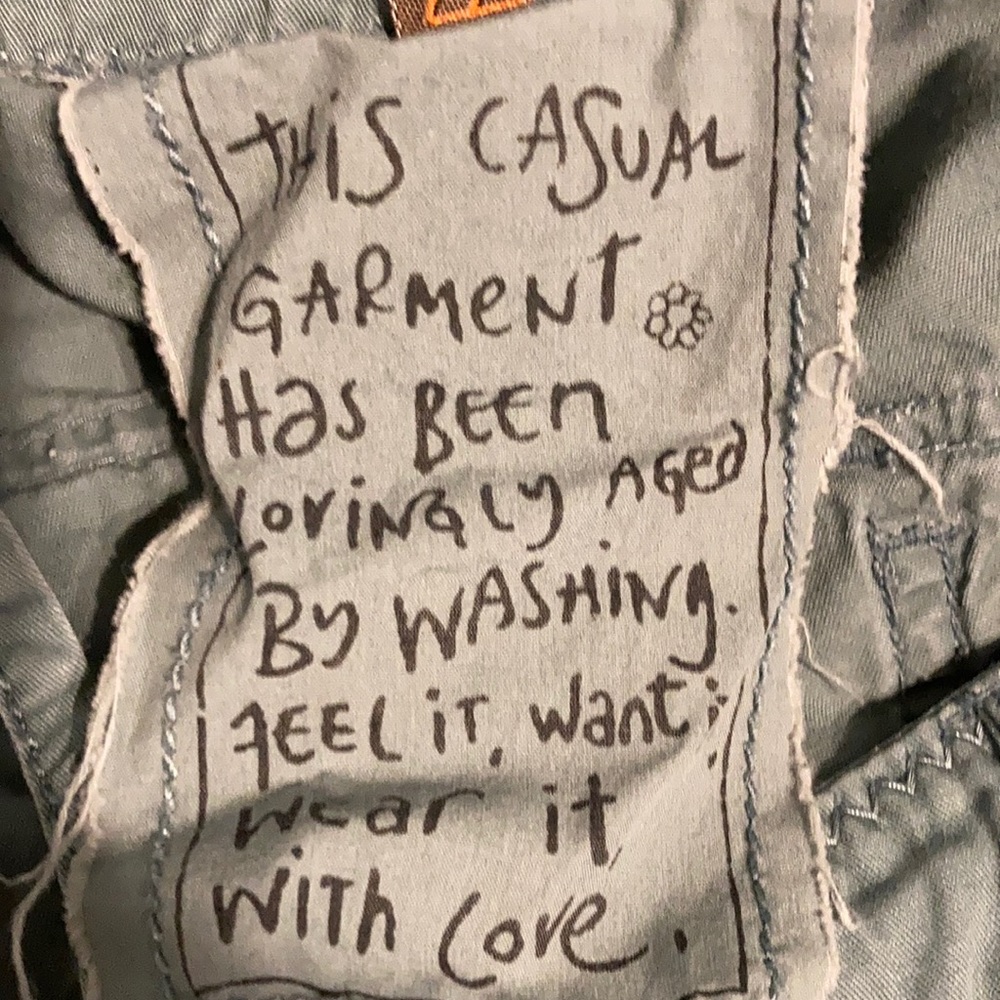 THiS CASUAL
GARMeNT
Has BEEn
LoviNGLy AGed
By WASHiNG.
FEEL iT, want it
wear it
WiTh Love.